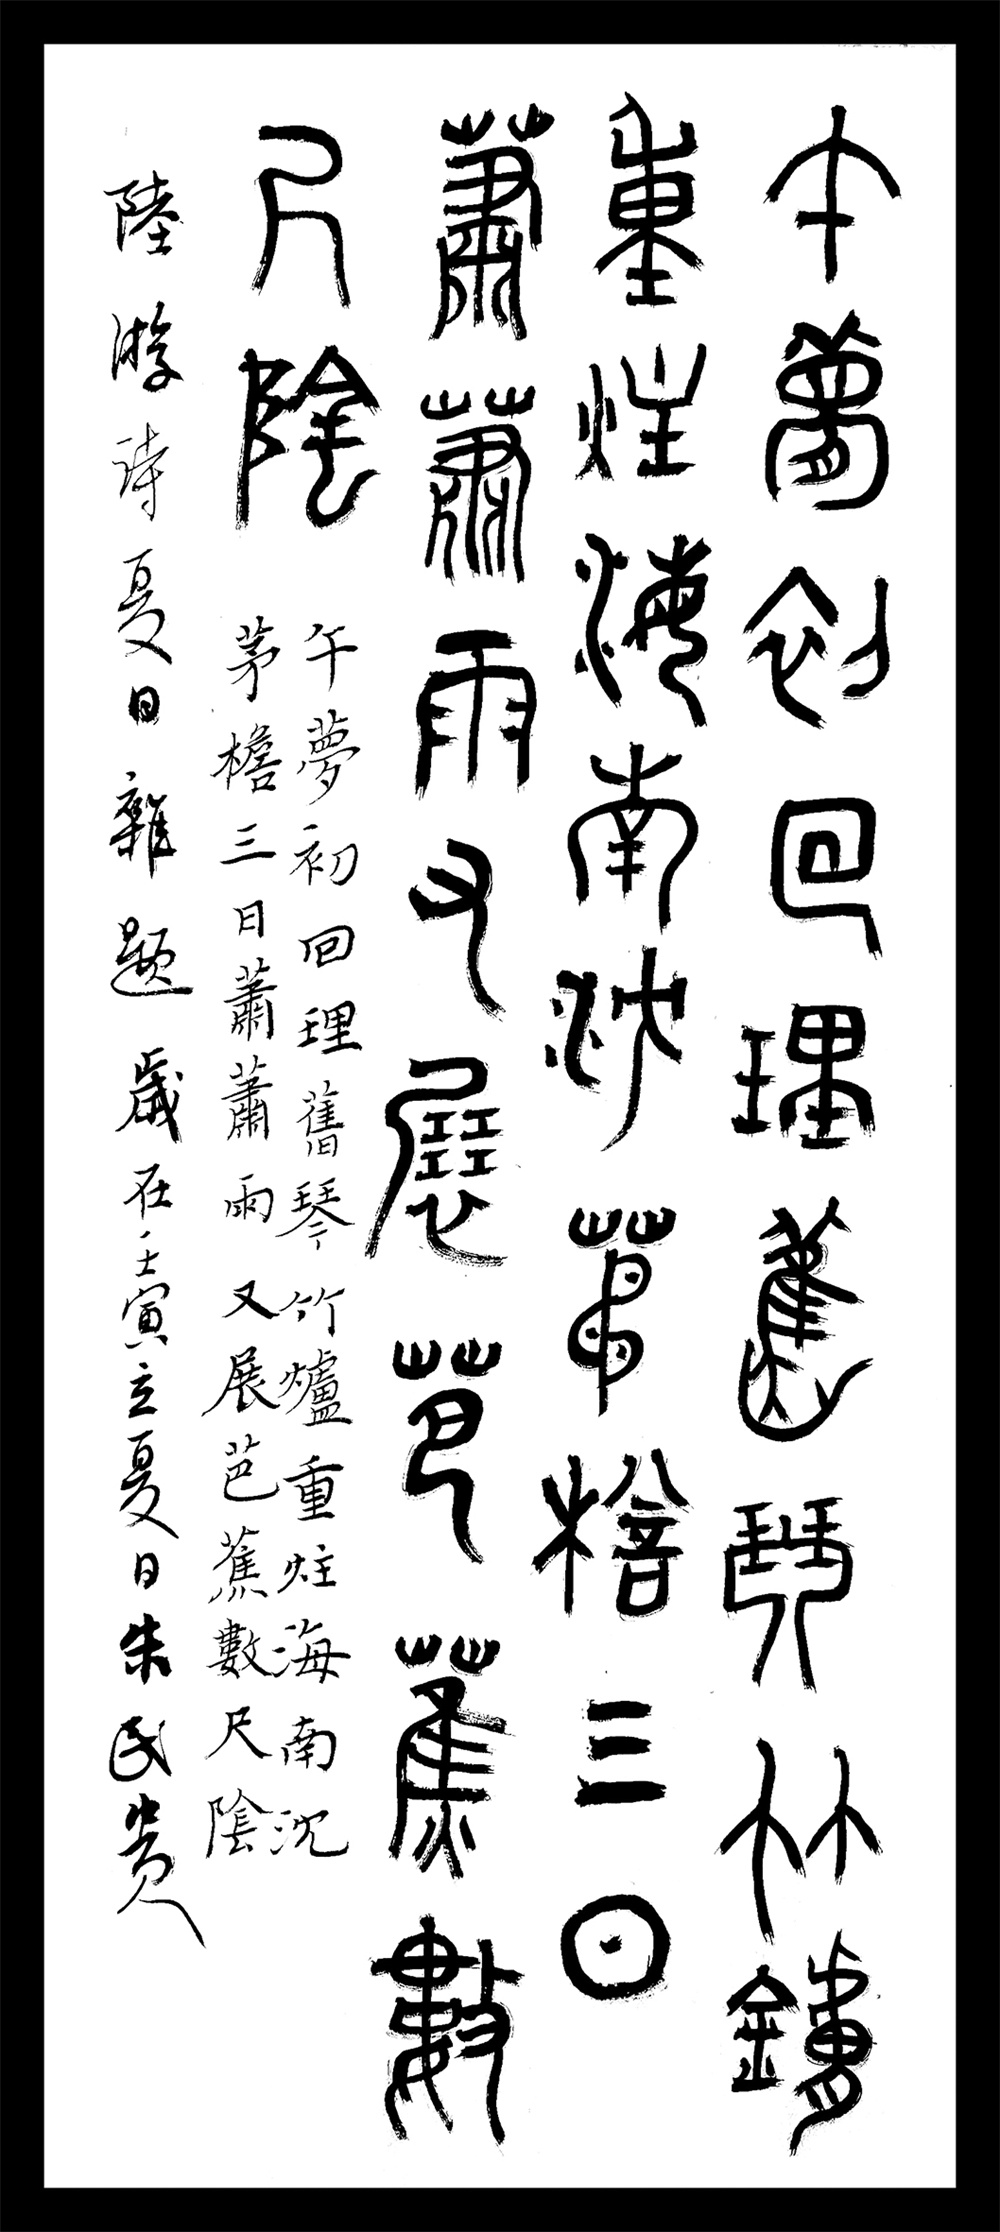 午夢初回理舊琴竹鑪
重炷海南沈茅檐三日
蕭蕭雨又展芭蕉數
尺陰
午夢初回理舊琴竹爐重炷海南沈
茅檐三日蕭蕭雨又展芭蕉數尺陰
陸游诗夏日雜题歲在壬寅立夏日朱民贵